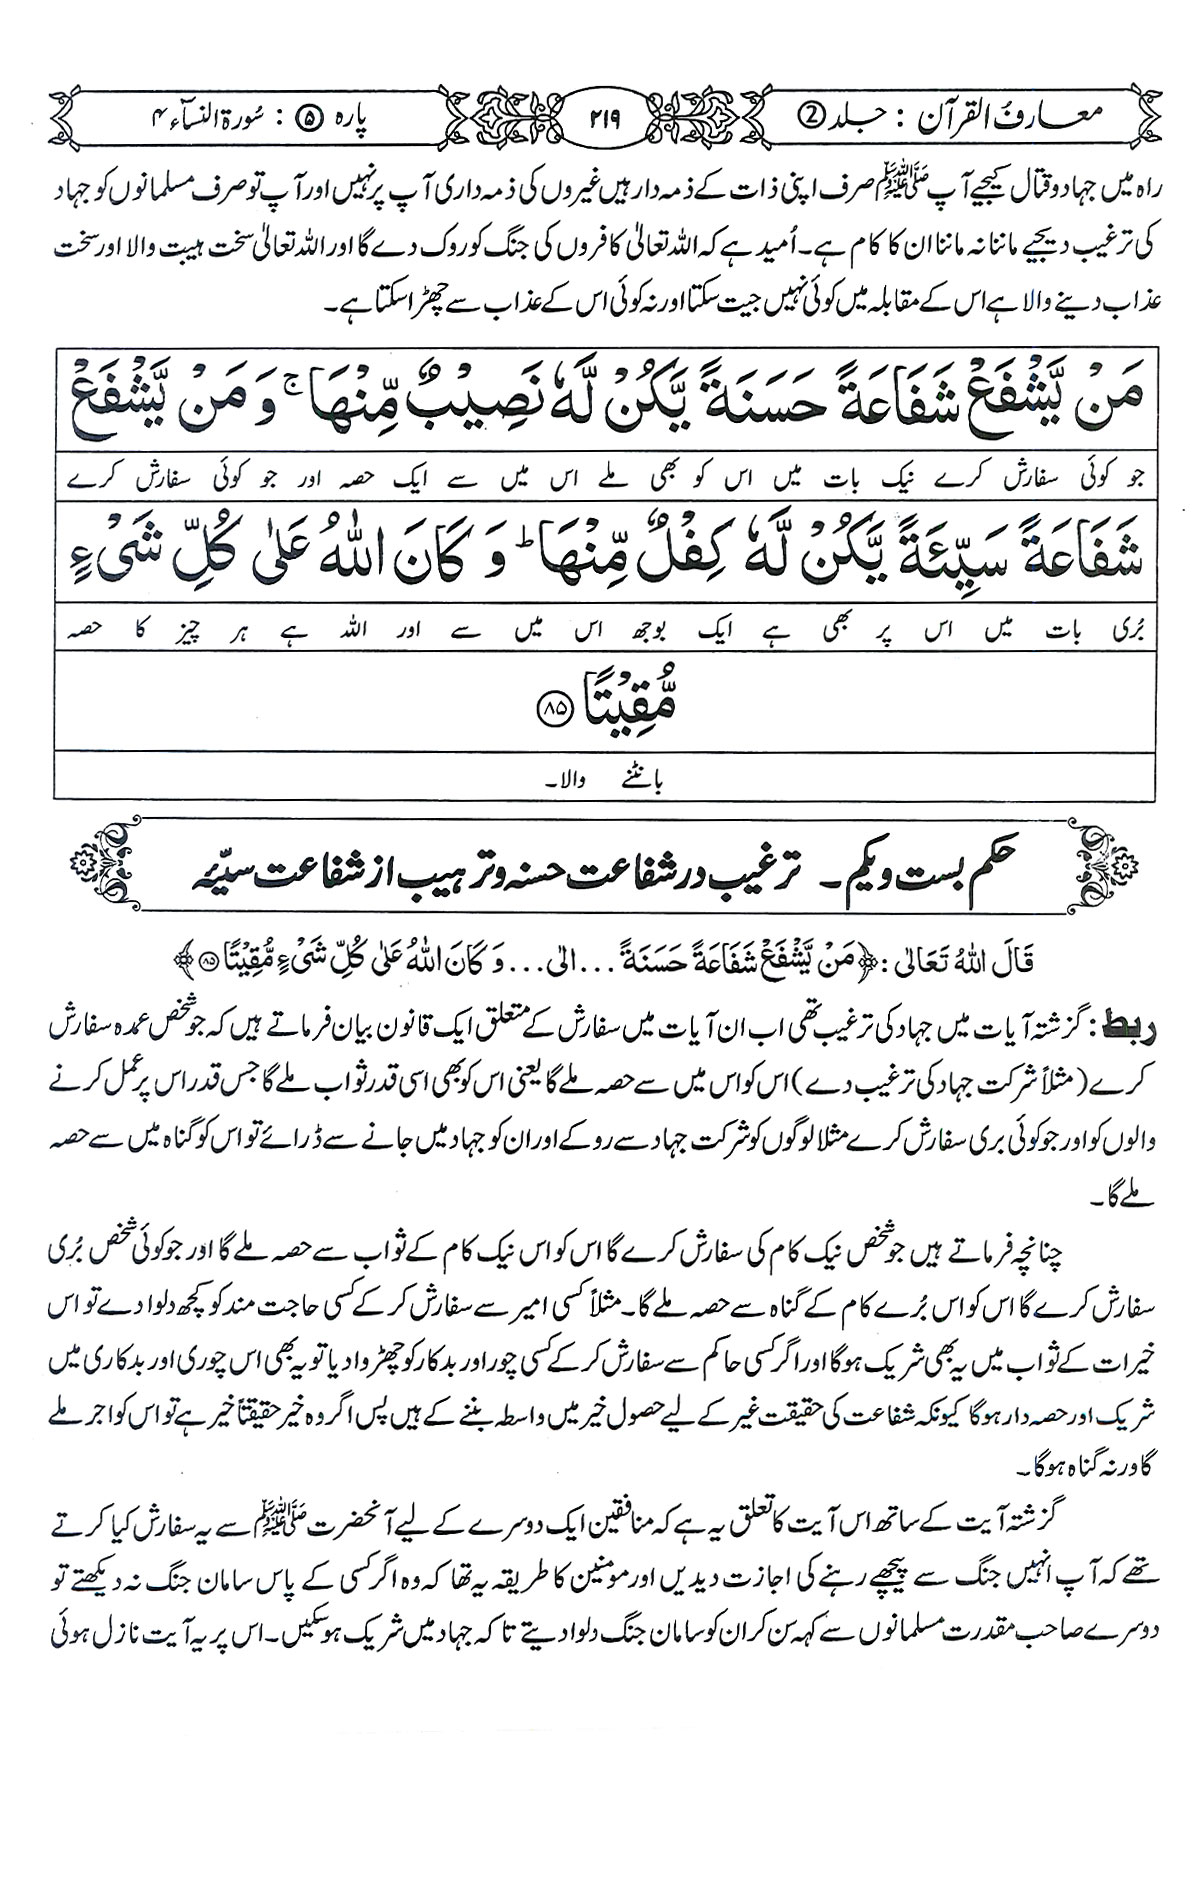 معارف القرآن : جلد ②
۲۱۹
پارہ ⑤ : سُورۃ النسآء ۴
راہ میں جہاد و قتال کیجیے آپ ﷺ صرف اپنی ذات کے ذمہ دار ہیں غیروں کی ذمہ داری آپ پر نہیں اور آپ تو صرف مسلمانوں کو جہاد
کی ترغیب دیجیے ماننا نہ ماننا ان کا کام ہے۔ اُمید ہے کہ اللہ تعالیٰ کافروں کی جنگ کو روک دے گا اور اللہ تعالیٰ سخت ہیبت والا اور سخت
عذاب دینے والا ہے اس کے مقابلہ میں کوئی نہیں جیت سکتا اور نہ کوئی اس کے عذاب سے چھڑا سکتا ہے۔
مَنْ يَّشْفَعْ شَفَاعَةً حَسَنَةً يَّكُنْ لَّهٗ نَصِيْبٌ مِّنْهَا ۚ وَ مَنْ يَّشْفَعْ
جو کوئی سفارش کرے نیک بات میں اس کو بھی ملے اس میں سے ایک حصہ اور جو کوئی سفارش کرے
شَفَاعَةً سَيِّئَةً يَّكُنْ لَّهٗ كِفْلٌ مِّنْهَا ؕ وَ كَانَ اللّٰهُ عَلٰى كُلِّ شَىْءٍ
بُری بات میں اس پر بھی ہے ایک بوجھ اس میں سے اور اللہ ہے ہر چیز کا حصہ
مُّقِيْتًا ۸۵
بانٹنے والا۔
حکم بست و یکم۔ ترغیب در شفاعت حسنہ و ترہیب از شفاعت سیّئہ
قَالَ اللّٰهُ تَعَالٰى : ﴿مَنْ يَّشْفَعْ شَفَاعَةً حَسَنَةً ... الى ... وَ كَانَ اللّٰهُ عَلٰى كُلِّ شَىْءٍ مُّقِيْتًا ۸۵﴾
ربط : گزشتہ آیات میں جہاد کی ترغیب تھی اب ان آیات میں سفارش کے متعلق ایک قانون بیان فرماتے ہیں کہ جو شخص عمدہ سفارش
کرے (مثلاً شرکت جہاد کی ترغیب دے) اس کو اس میں سے حصہ ملے گا یعنی اس کو بھی اسی قدر ثواب ملے گا جس قدر اس پر عمل کرنے
والوں کو اور جو کوئی بری سفارش کرے مثلا لوگوں کو شرکت جہاد سے روکے اور ان کو جہاد میں جانے سے ڈرائے تو اس کو گناہ میں سے حصہ
ملے گا۔
چنانچہ فرماتے ہیں جو شخص نیک کام کی سفارش کرے گا اس کو اس نیک کام کے ثواب سے حصہ ملے گا اور جو کوئی شخص بُری
سفارش کرے گا اس کو اس بُرے کام کے گناہ سے حصہ ملے گا۔ مثلاً کسی امیر سے سفارش کر کے کسی حاجت مند کو کچھ دلوا دے تو اس
خیرات کے ثواب میں یہ بھی شریک ہوگا اور اگر کسی حاکم سے سفارش کر کے کسی چور اور بدکار کو چھڑوا دیا تو یہ بھی اس چوری اور بدکاری میں
شریک اور حصہ دار ہوگا کیونکہ شفاعت کی حقیقت غیر کے لیے حصول خیر میں واسطہ بننے کے ہیں پس اگر وہ خیر حقیقتاً خیر ہے تو اس کو اجر ملے
گا ورنہ گناہ ہوگا۔
گزشتہ آیت کے ساتھ اس آیت کا تعلق یہ ہے کہ منافقین ایک دوسرے کے لیے آنحضرت ﷺ سے یہ سفارش کیا کرتے
تھے کہ آپ انہیں جنگ سے پیچھے رہنے کی اجازت دیدیں اور مومنین کا طریقہ یہ تھا کہ وہ اگر کسی کے پاس سامان جنگ نہ دیکھتے تو
دوسرے صاحب مقدرت مسلمانوں سے کہہ سن کر ان کو سامان جنگ دلوا دیتے تا کہ جہاد میں شریک ہو سکیں۔ اس پر یہ آیت نازل ہوئی